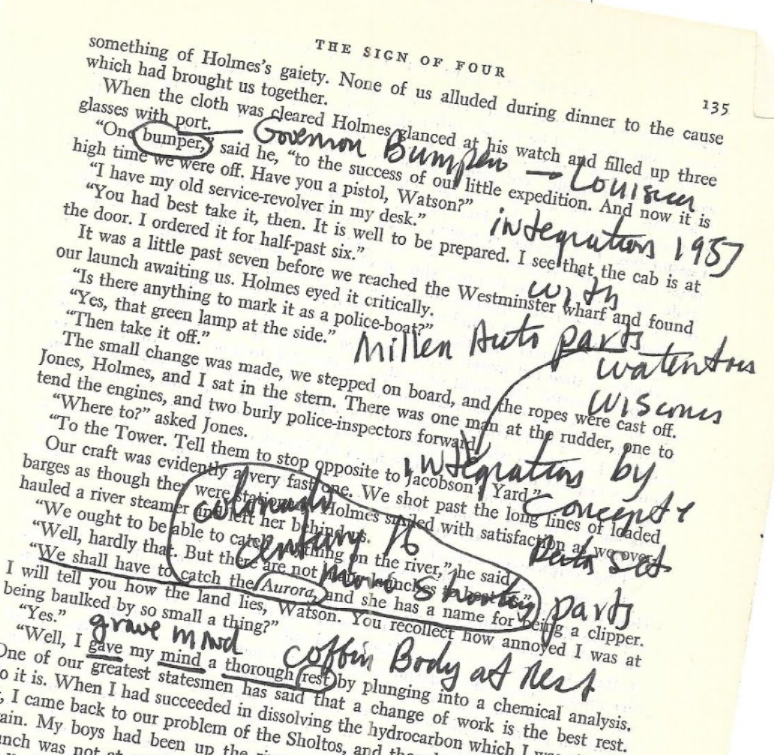 THE SIGN OF FOUR
135
something of Holmes's gaiety. None of us alluded during dinner to the cause
which had brought us together.
When the cloth was cleared Holmes glanced at his watch and filled up three
glasses with port.
"One bumper," said he, "to the success of our little expedition. And now it is
high time we were off. Have you a pistol, Watson?"
"I have my old service-revolver in my desk."
"You had best take it, then. It is well to be prepared. I see that the cab is at
the door. I ordered it for half-past six."
It was a little past seven before we reached the Westminster wharf and found
our launch awaiting us. Holmes eyed it critically.
"Is there anything to mark it as a police-boat?"
"Yes, that green lamp at the side."
"Then take it off."
The small change was made, we stepped on board, and the ropes were cast off.
Jones, Holmes, and I sat in the stern. There was one man at the rudder, one to
tend the engines, and two burly police-inspectors forward.
"Where to?" asked Jones.
"To the Tower. Tell them to stop opposite to Jacobson's Yard."
Our craft was evidently a very fast one. We shot past the long lines of loaded
barges as though they were stationary. Holmes smiled with satisfaction as we over-
hauled a river steamer and left her behind us.
"We ought to be able to catch anything on the river," he said.
"Well, hardly that. But there are not
"We shall have to catch the Aurora, and she has a name for being a clipper.
I will tell you how the land lies, Watson. You recollect how annoyed I was at
being baulked by so small a thing?"
"Yes."
"Well, I gave my mind a thorough rest by plunging into a chemical analysis.
One of our greatest statesmen has said that a change of work is the best rest.
o it is. When I had succeeded in dissolving the hydrocarbon which I was
, I came back to our problem of the Sholtos, and
ain. My boys had been up the
unch was not
Governor Bumpers
integration 1957
with
Miller Auto parts
integration by
Concepts
Data Set
parts
century 16
grave mind
coffin Body at Rest